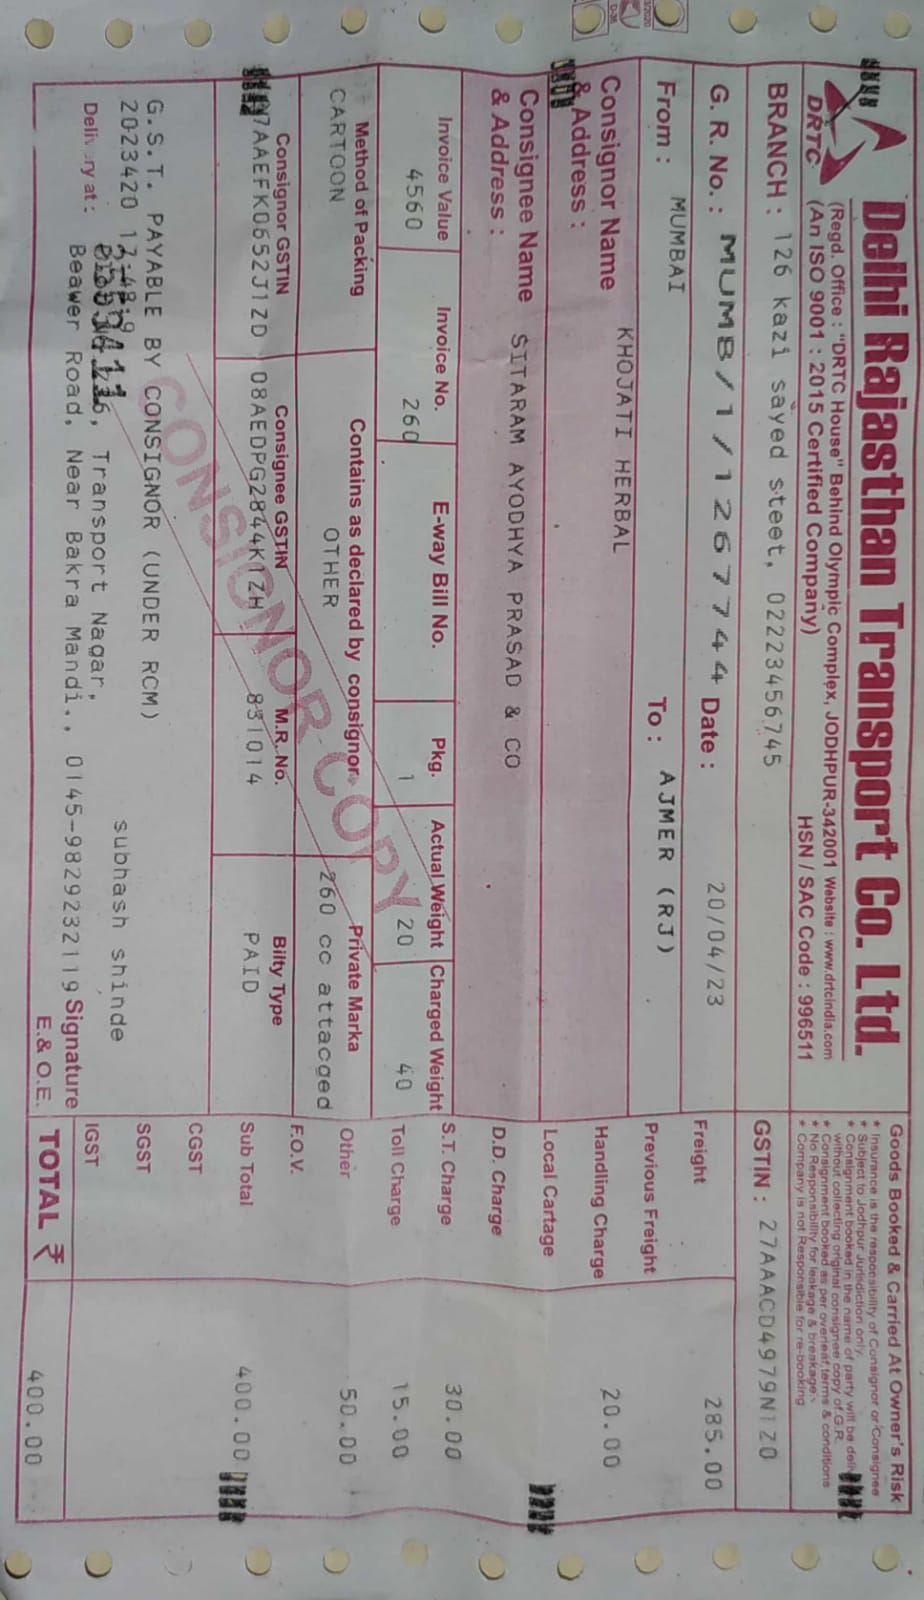 Delhi Rajasthan Transport Co. Ltd.
DRTC
(Regd. Office : "DRTC House" Behind Olympic Complex, JODHPUR-342001 Website : www.drtcindia.com
(An ISO 9001 : 2015 Certified Company)
HSN / SAC Code : 996511
Goods Booked & Carried At Owner's Risk
* Insurance is the responsibility of Consignor or Consignee
* Subject to Jodhpur Jurisdiction only.
* Consignment booked in the name of party will be
without collecting original consignee copy of G.R.
* Consignment booked as per overleaf terms & conditions
* No Responsibility for leakage & breakage
* Company is not Responsible for re-booking
BRANCH : 126 kazi sayed steet, 02223456745
GSTIN : 27AAACD4979N1Z0
G. R. No. : MUMB/1/1267744 Date : 20/04/23
From : MUMBAI To : AJMER (RJ)
Consignor Name
& Address :
KHOJATI HERBAL
Consignee Name
& Address :
SITARAM AYODHYA PRASAD & CO
Invoice Value Invoice No. E-way Bill No. Pkg. Actual Weight Charged Weight
4560 260 1 20 40
Method of Packing Contains as declared by consignor Private Marka
CARTOON OTHER 260 cc attacged
Consignor GSTIN Consignee GSTIN M.R. No. Bilty Type
7AAEFK0652J1ZD 08AEDPG2844K1ZH 831014 PAID
CONSIGNOR COPY
G.S.T. PAYABLE BY CONSIGNOR (UNDER RCM)
2023420 subhash shinde
Delivery at : Transport Nagar,
Beawer Road, Near Bakra Mandi.. 0145-9829232119 Signature
E. & O.E.
Freight 285.00
Previous Freight
Handling Charge 20.00
Local Cartage
D.D. Charge
S.T. Charge 30.00
Toll Charge 15.00
Other 50.00
F.O.V.
Sub Total 400.00
CGST
SGST
IGST
TOTAL ₹ 400.00